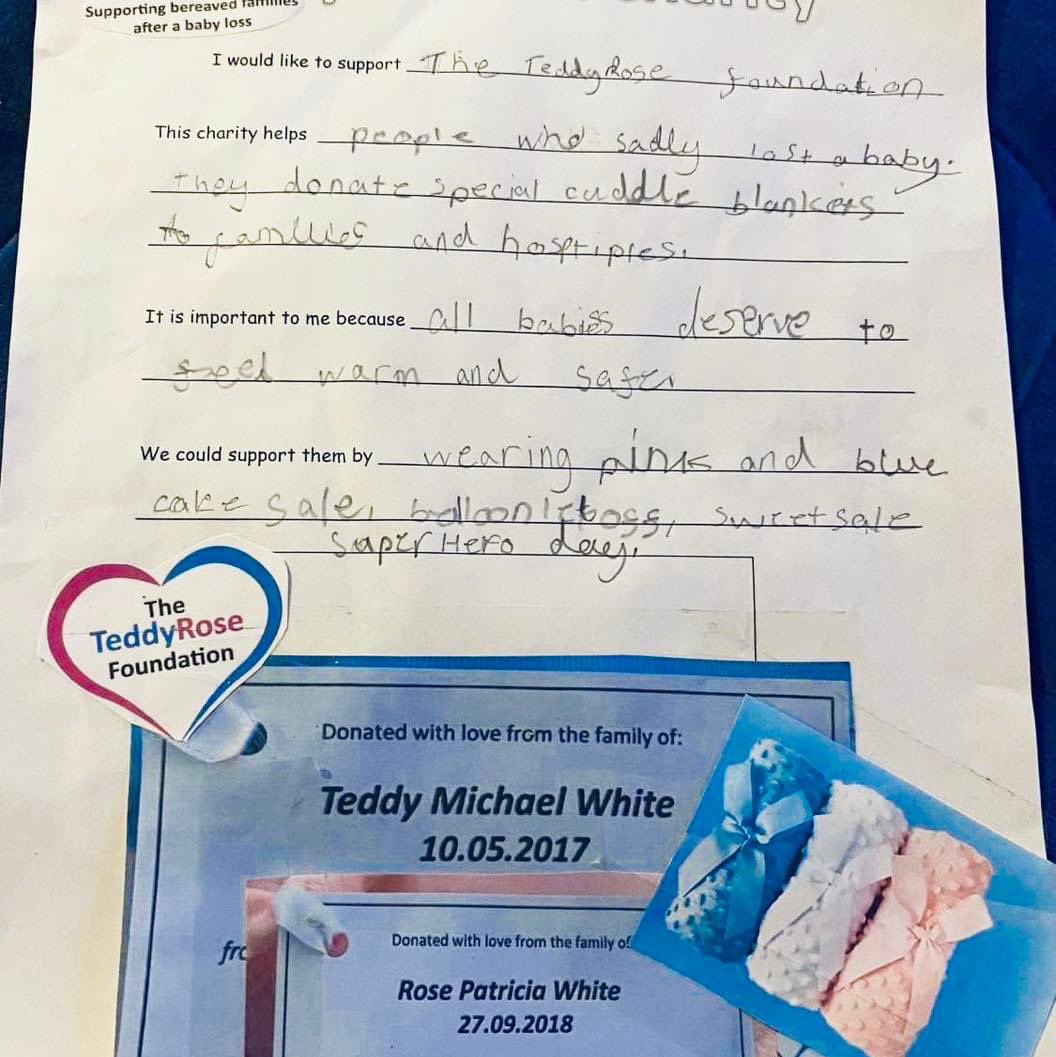 Supporting bereaved families
after a baby loss
I would like to support The TeddyRose foundation
This charity helps people who sadly lost a baby.
they donate special cuddle blankets
to families and hosptiples.
It is important to me because all babies deserve to
feel warm and safe.
We could support them by wearing pink and blue
cake sale, balloon, sweet sale
superHero day.
The
TeddyRose
Foundation
Donated with love from the family of:
Teddy Michael White
10.05.2017
Donated with love from the family of
Rose Patricia White
27.09.2018